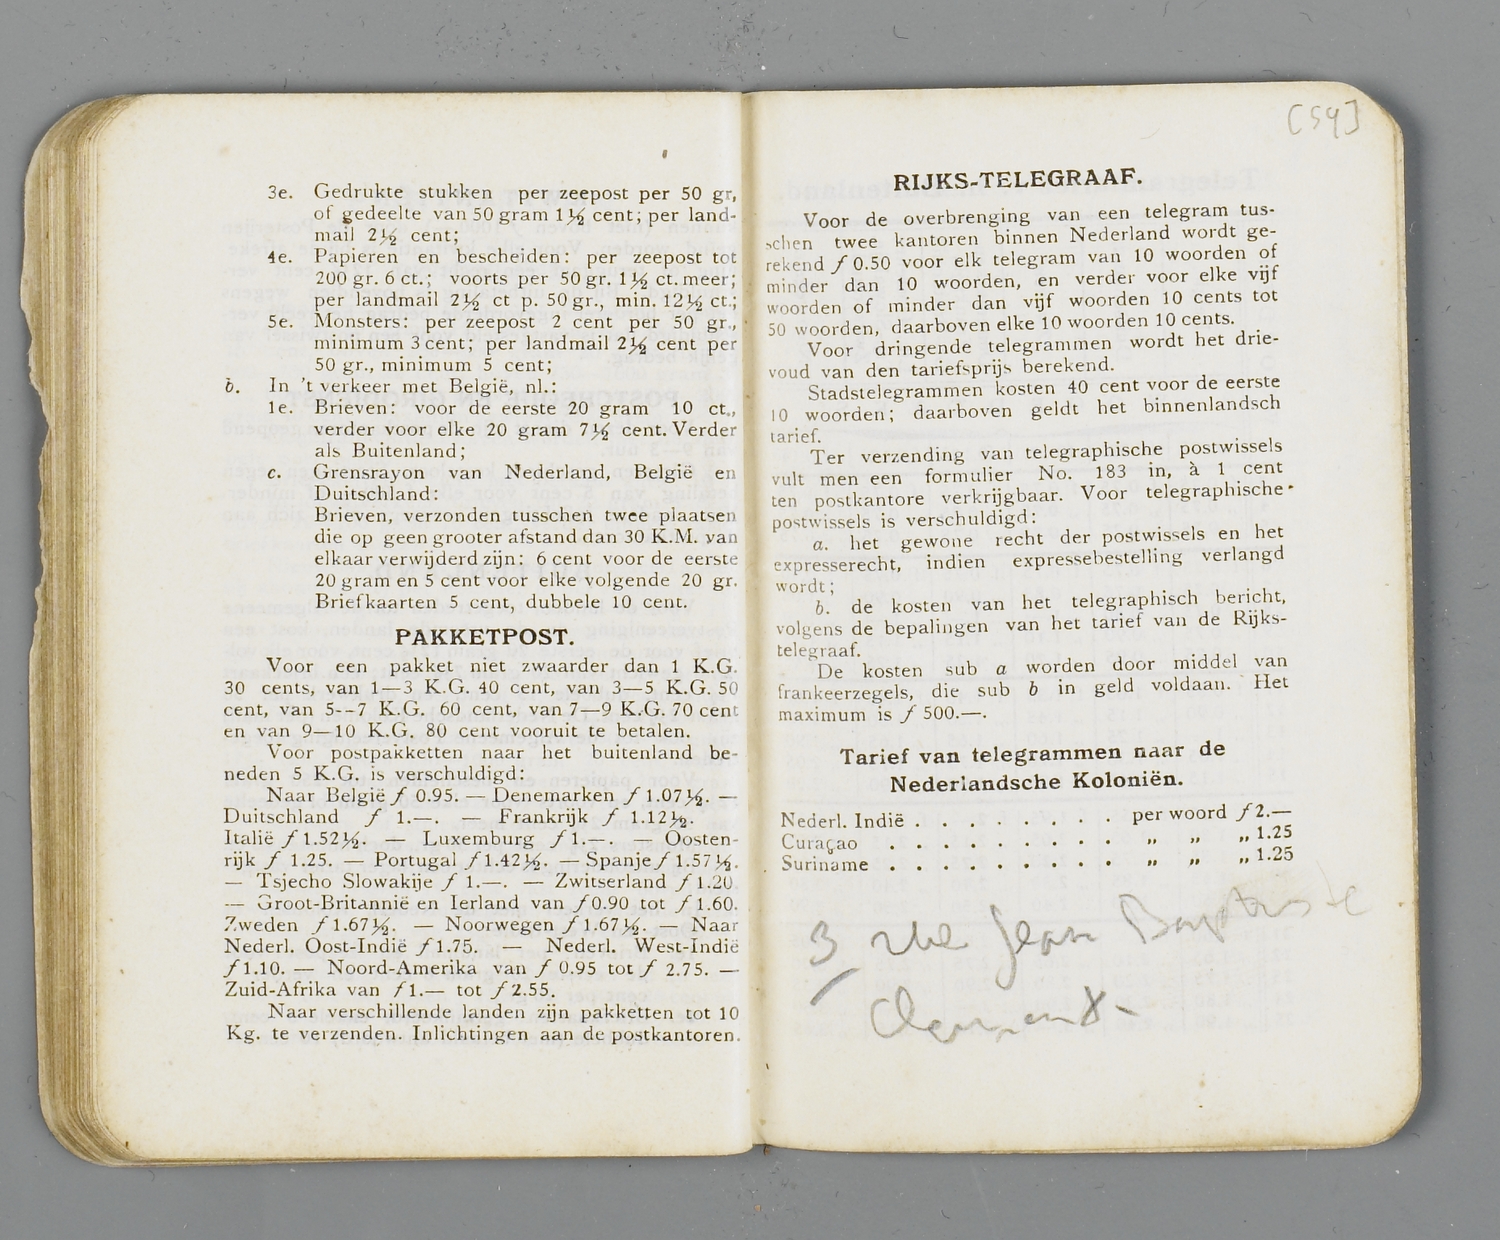 3e. Gedrukte stukken per zeepost per 50 gr,
of gedeelte van 50 gram 1½ cent; per land-
mail 2½ cent;
4e. Papieren en bescheiden: per zeepost tot
200 gr. 6 ct.; voorts per 50 gr. 1½ ct. meer;
per landmail 2½ ct p. 50 gr., min. 12½ ct.;
5e. Monsters: per zeepost 2 cent per 50 gr.,
minimum 3 cent; per landmail 2½ cent per
50 gr., minimum 5 cent;
b. In 't verkeer met België, nl.:
1e. Brieven: voor de eerste 20 gram 10 ct.,
verder voor elke 20 gram 7½ cent. Verder
als Buitenland;
c. Grensrayon van Nederland, België en
Duitschland:
Brieven, verzonden tusschen twee plaatsen
die op geen grooter afstand dan 30 K.M. van
elkaar verwijderd zijn: 6 cent voor de eerste
20 gram en 5 cent voor elke volgende 20 gr.
Briefkaarten 5 cent, dubbele 10 cent.
PAKKETPOST.
Voor een pakket niet zwaarder dan 1 K.G.
30 cents, van 1—3 K.G. 40 cent, van 3—5 K.G. 50
cent, van 5--7 K.G. 60 cent, van 7—9 K.G. 70 cent
en van 9—10 K.G. 80 cent vooruit te betalen.
Voor postpakketten naar het buitenland be-
neden 5 K.G. is verschuldigd:
Naar België ƒ 0.95. — Denemarken ƒ 1.07½. —
Duitschland ƒ 1.—. — Frankrijk ƒ 1.12½.
Italië ƒ 1.52½. — Luxemburg ƒ 1.—. — Oosten-
rijk ƒ 1.25. — Portugal ƒ 1.42½. — Spanje ƒ 1.57½.
— Tsjecho Slowakije ƒ 1.—. — Zwitserland ƒ 1.20.
— Groot-Britannië en Ierland van ƒ 0.90 tot ƒ 1.60.
Zweden ƒ 1.67½. — Noorwegen ƒ 1.67½. — Naar
Nederl. Oost-Indië ƒ 1.75. — Nederl. West-Indië
ƒ 1.10. — Noord-Amerika van ƒ 0.95 tot ƒ 2.75. —
Zuid-Afrika van ƒ 1.— tot ƒ 2.55.
Naar verschillende landen zijn pakketten tot 10
Kg. te verzenden. Inlichtingen aan de postkantoren.
[59]
RIJKS-TELEGRAAF.
Voor de overbrenging van een telegram tus-
schen twee kantoren binnen Nederland wordt ge-
rekend ƒ 0.50 voor elk telegram van 10 woorden of
minder dan 10 woorden, en verder voor elke vijf
woorden of minder dan vijf woorden 10 cents tot
50 woorden, daarboven elke 10 woorden 10 cents.
Voor dringende telegrammen wordt het drie-
voud van den tariefsprijs berekend.
Stadstelegrammen kosten 40 cent voor de eerste
10 woorden; daarboven geldt het binnenlandsch
tarief.
Ter verzending van telegraphische postwissels
vult men een formulier No. 183 in, à 1 cent
ten postkantore verkrijgbaar. Voor telegraphische
postwissels is verschuldigd:
a. het gewone recht der postwissels en het
expresserecht, indien expressebestelling verlangd
wordt;
b. de kosten van het telegraphisch bericht,
volgens de bepalingen van het tarief van de Rijks-
telegraaf.
De kosten sub a worden door middel van
frankeerzegels, die sub b in geld voldaan. Het
maximum is ƒ 500.—.
Tarief van telegrammen naar de
Nederlandsche Koloniën.
Nederl. Indië . . . . . . . . per woord ƒ 2.—
Curaçao . . . . . . . . . „ „ „ 1.25
Suriname . . . . . . . . . „ „ „ 1.25
3 rue Jean Baptiste
Clement